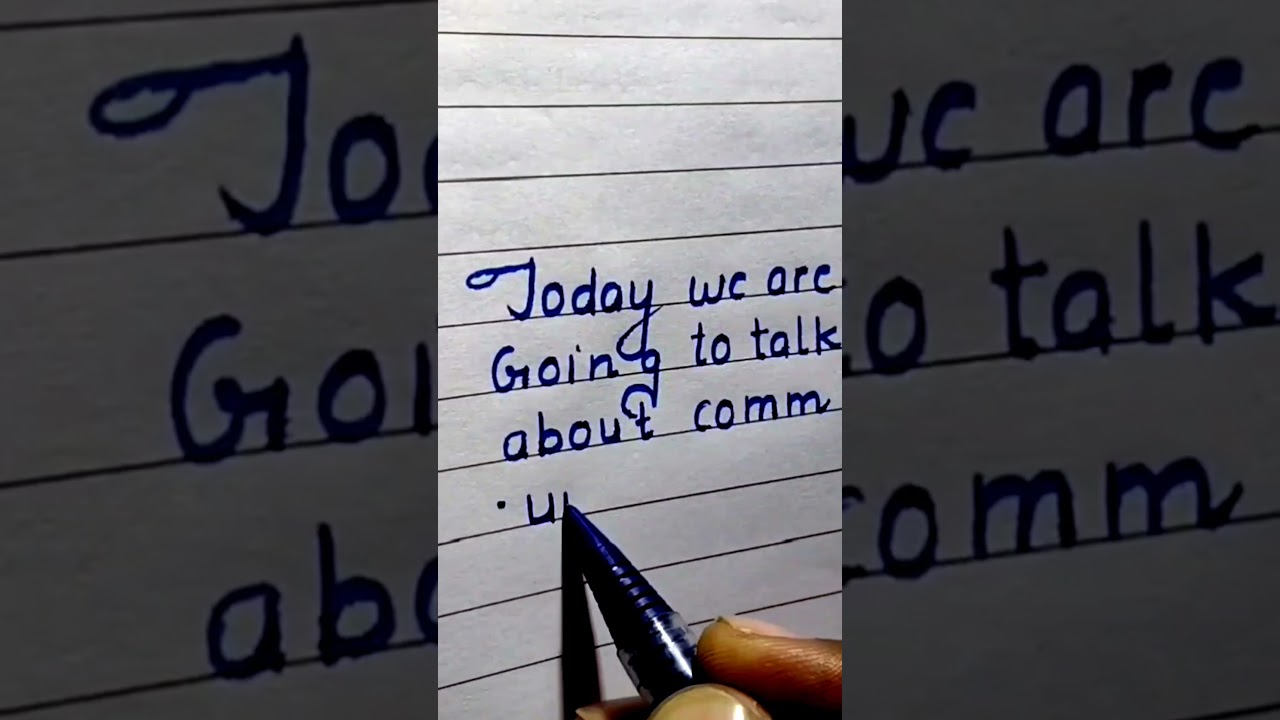 Today we are
Going to talk
about comm
. u